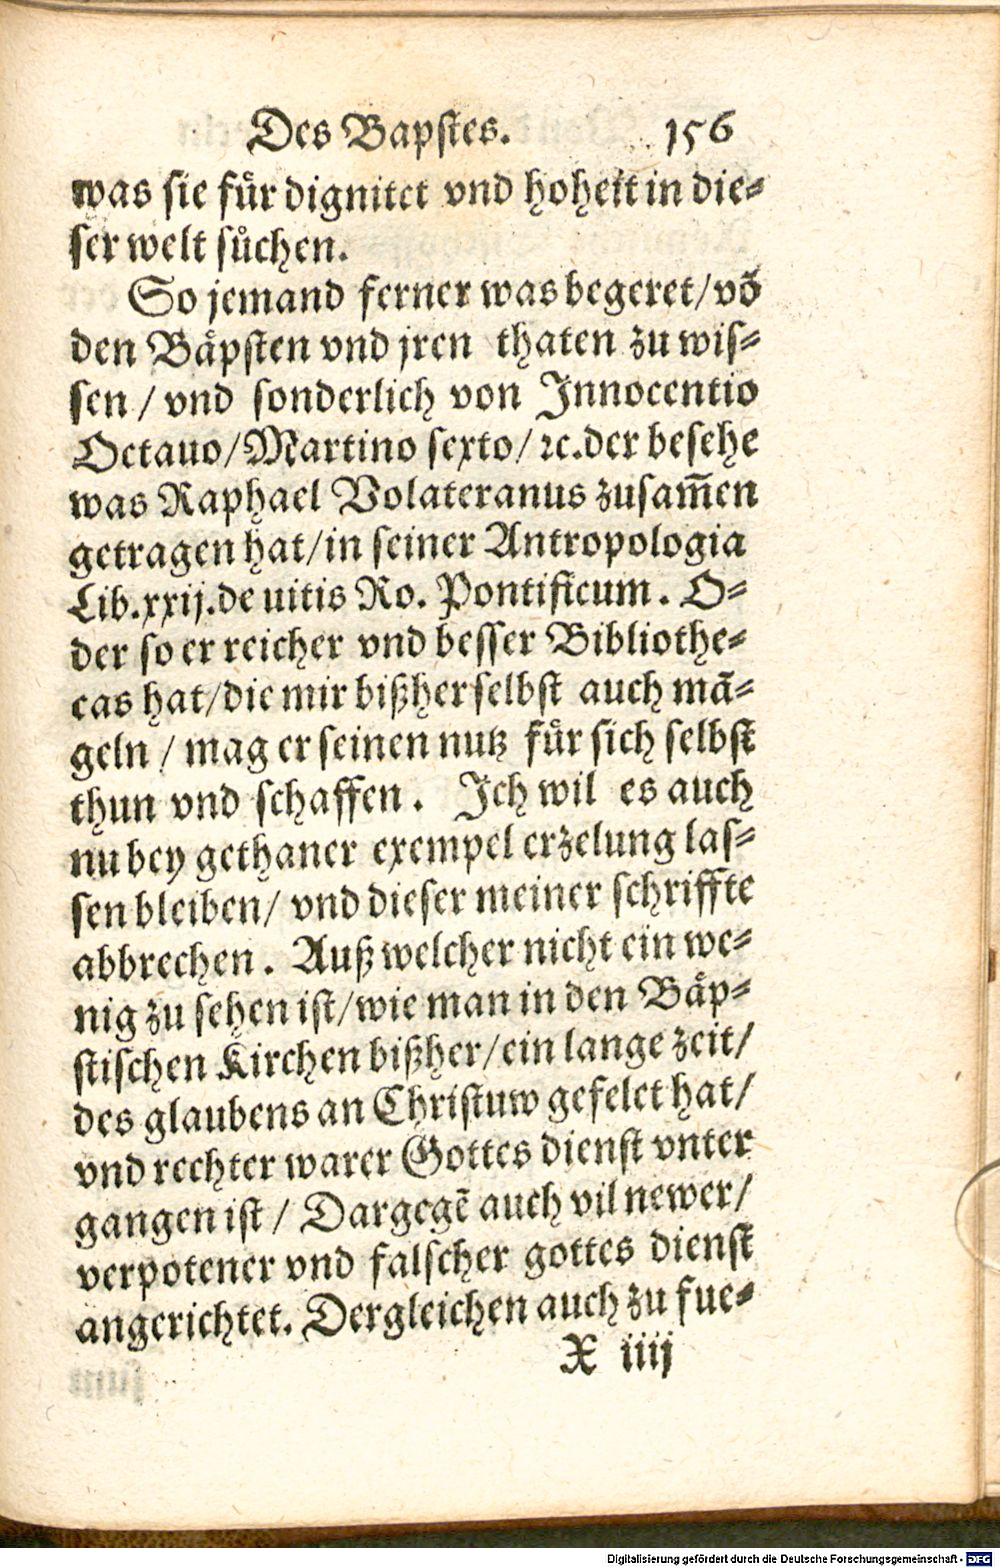 Des Bapstes. 156
was sie fuͤr dignitet vnd hoheit in die⸗
ser welt suͤchen.
So jemand ferner was begeret/võ
den Baͤpsten vnd jren thaten zu wis⸗
sen / vnd sonderlich von Innocentio
Octauo/Martino sexto/ ꝛc.der besehe
was Raphael Volateranus zusam̃en
getragen hat/in seiner Antropologia
Lib.xxij.de uitis Ro. Pontificum. O⸗
der so er reicher vnd besser Bibliothe⸗
cas hat/die mir bißher selbst auch mã⸗
geln / mag er seinen nutz fuͤr sich selbst
thun vnd schaffen. Ich wil es auch
nu bey gethaner exempel erzelung las⸗
sen bleiben/ vnd dieser meiner schriffte
abbrechen. Auß welcher nicht ein we⸗
nig zu sehen ist/wie man in den Baͤp⸗
stischen Kirchen bißher/ein lange zeit/
des glaubens an Christuw gefelet hat/
vnd rechter warer Gottes dienst vnter
gangen ist / Dargegẽ auch vil newer/
verpotener vnd falscher gottes dienst
angerichtet. Dergleichen auch zu fue⸗
X iiij
Digitalisierung gefördert durch die Deutsche Forschungsgemeinschaft - DFG